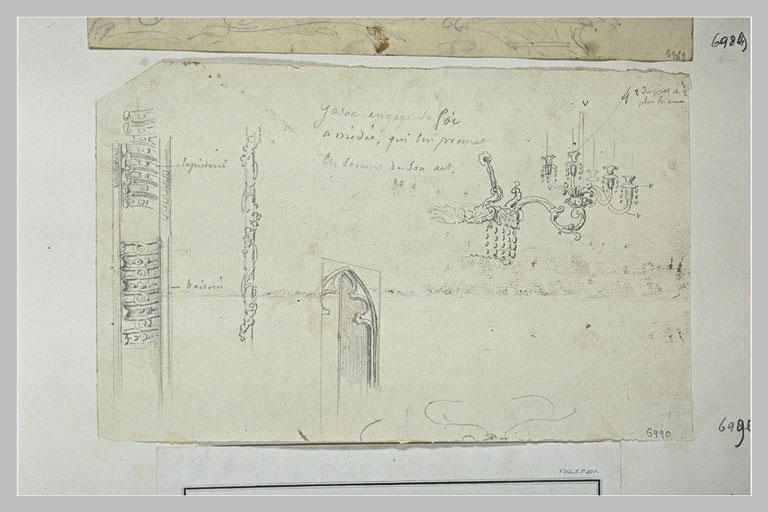 6989
6989
Jason engage sa foi
a médée, qui lui promet
les secours de son art.
4
plus loin
V
tapisserie
boiserie
6990
6990